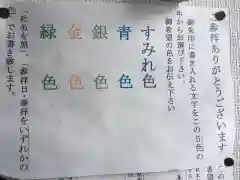 参拝ありがとうございます
御朱印に書き入れる文字をこの５色の
中からお選び下さい。
御希望の色をお伝え下さい
すみれ色
青色
銀色
金色
緑色
社名を黒、「参拝日・奉拝をいずれかの
色」でお書き致します。